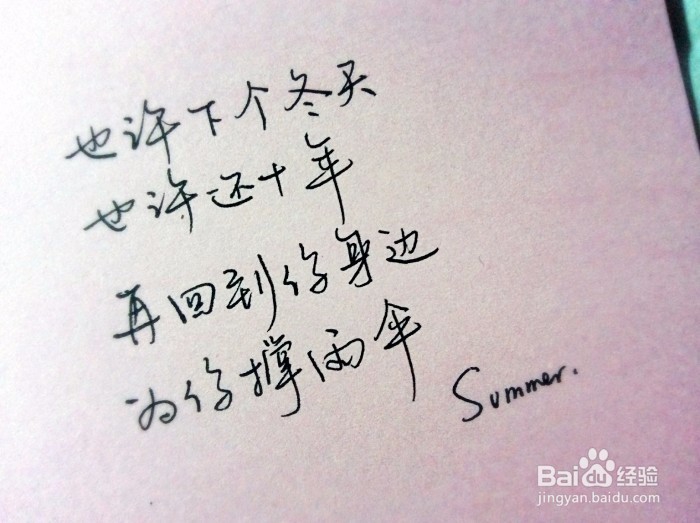 也许下个冬天
也许还十年
再回到你身边
为你撑雨伞
Summer.
Baidu经验
jingyan.baidu.com